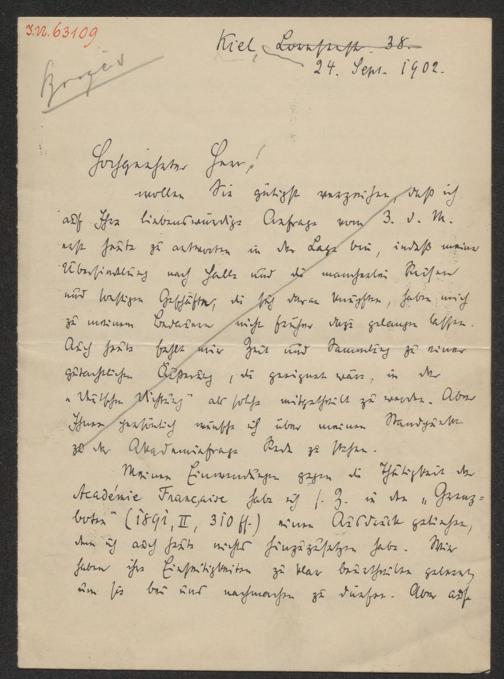 I.N. 63109
Kiel, Lornsenstr. 38.
24. Sept. 1902.
Hochgeehrter Herr!
wollen Sie gütigst verzeihen, daß ich
auf Ihre liebenswürdige Anfrage vom 3. d. M.
erst heute zu antworten in der Lage bin, indeß meine
Übersiedlung nach Halle und die mancherlei Reisen
und sonstigen Geschäfte, die sich daran knüpften, haben mich
zu meinem Bedauern nicht früher dazu gelangen lassen.
Auch heute fehlt mir Zeit und Sammlung zu einer
gutachtlichen Äußerung, die geeignet wäre, in der
„Deutschen Dichtung" als solche mitgetheilt zu werden. Aber
Ihnen persönlich möchte ich über meinen Standpunkt
zu der Akademiefrage Rede zu stehen.
Meinen Einwendungen gegen die Thätigkeit der
Académie Française habe ich s. Z. in den „Grenz-
boten" (1891, II, 310 ff.) einen Ausdruck geliehen,
dem ich auch heute nichts hinzuzusetzen habe. Wir
haben ihre Einseitigkeiten zu klar beurtheilen gelernt,
um sie bei uns nachmachen zu dürfen. Aber auch